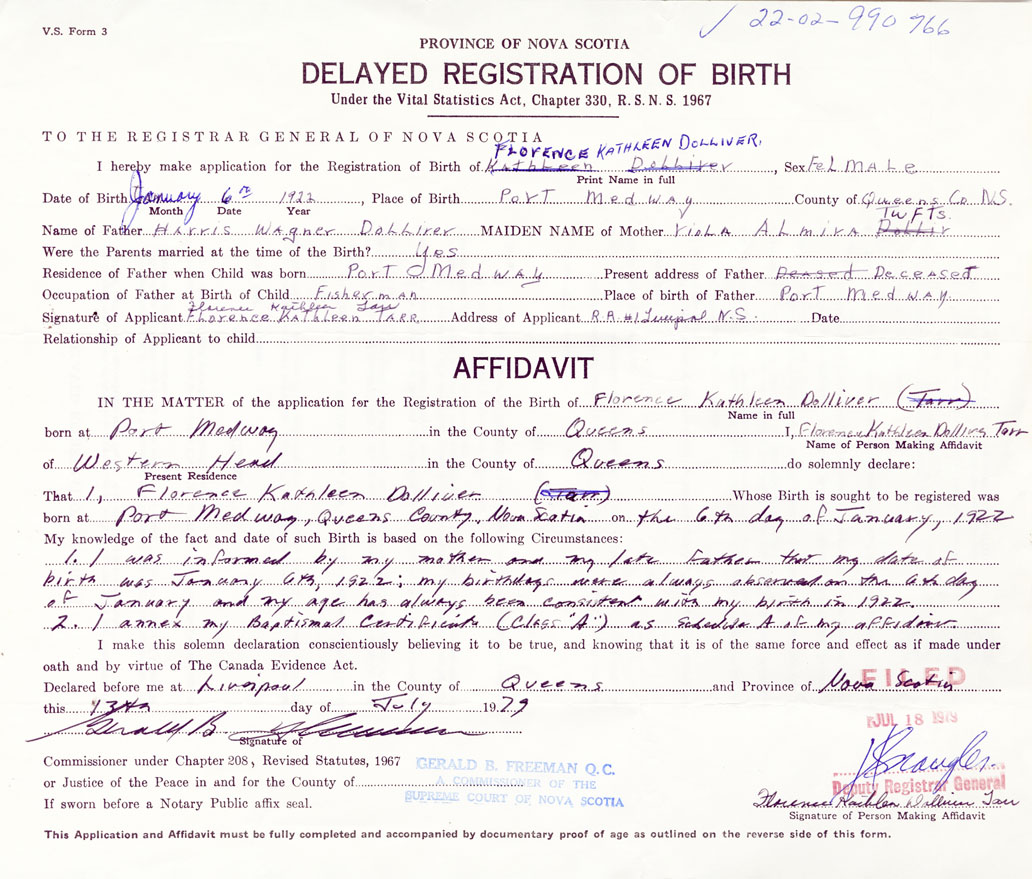 V.S. Form 3
✓ 22-02-990766
PROVINCE OF NOVA SCOTIA
DELAYED REGISTRATION OF BIRTH
Under the Vital Statistics Act, Chapter 330, R.S.N.S. 1967
TO THE REGISTRAR GENERAL OF NOVA SCOTIA
FLORENCE KATHLEEN DOLLIVER,
I hereby make application for the Registration of Birth of Kathleen Dolliver, Sex FeLMALe
Print Name in full
Date of Birth January 6 1922, Place of Birth PorT MedwAy County of Queens Co N.S.
Month Date Year
TWFTS.
Name of Father HArris WAgner DOLLIver MAIDEN NAME of Mother VIOLA ALmirA
Were the Parents married at the time of the Birth? Yes
Residence of Father when Child was born PorT MedwAy Present address of Father DeceAseD
Occupation of Father at Birth of Child FisherMAN Place of birth of Father PorT MedwAy
Florence Kathleen Tarr
Signature of Applicant FLorence KAThleen TArr Address of Applicant R.R #1 Liverpool N.S. Date
Relationship of Applicant to child
AFFIDAVIT
IN THE MATTER of the application for the Registration of the Birth of Florence Kathleen Dolliver (Tarr)
Name in full
born at Port Medway in the County of Queens I, Florence Kathleen Dolliver Tarr
Name of Person Making Affidavit
of Western Head in the County of Queens do solemnly declare:
Present Residence
That I, Florence Kathleen Dolliver (Tarr) Whose Birth is sought to be registered was
born at Port Medway, Queens County, Nova Scotia on the 6th day of January, 1922
My knowledge of the fact and date of such Birth is based on the following Circumstances:
1. I was informed by my mother and my late father that my date of
birth was January 6th, 1922; my birthdays were always observed on the 6th day
of January and my age has always been consistent with my birth in 1922.
2. I annex my Baptismal Certificate (Class "A") as Schedule A of my affidavit
I make this solemn declaration conscientiously believing it to be true, and knowing that it is of the same force and effect as if made under
oath and by virtue of The Canada Evidence Act.
Declared before me at Liverpool in the County of Queens and Province of Nova Scotia
FILED
this 13th day of July 1979
JUL 18 1979
Gerald B. Freeman
Signature of
Commissioner under Chapter 208, Revised Statutes, 1967
GERALD B. FREEMAN Q.C.
or Justice of the Peace in and for the County of
A COMMISSIONER OF THE
Deputy Registrar General
If sworn before a Notary Public affix seal.
SUPREME COURT OF NOVA SCOTIA
Florence Kathleen Dolliver Tarr
Signature of Person Making Affidavit
This Application and Affidavit must be fully completed and accompanied by documentary proof of age as outlined on the reverse side of this form.